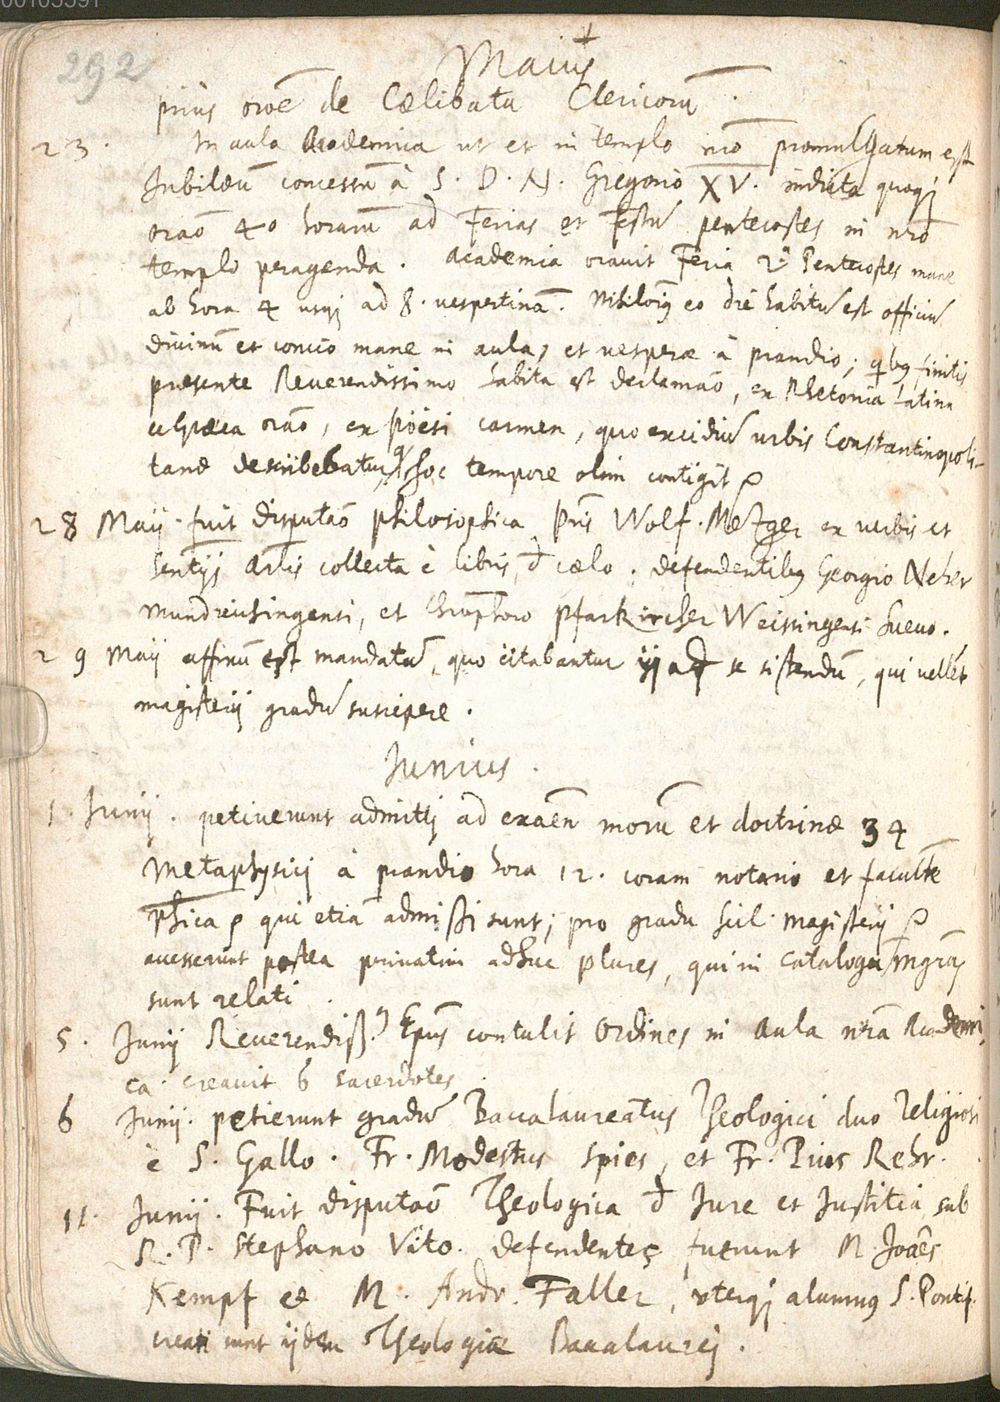 00103391
292
Maius
prius orōe de Cælibatu Clericorū.
23. In aula Academica ut et in templo nrō promulgatum est
Jubilæū concessū à S. D. N. Gregorio XV. indicta quoq;
oraō 40 horarū ad Ferias et Festū pentecostes in nrō
templo peragenda. Academia oravit Feria 2ª Pentecostes mane
ab hora 4 usq; ad 8. vespertinā. Nihilomin⁹ eo die habitū est officiū
divinū et concio mane in aula, et vesperæ à prandio; quib⁹ finitis
præsente Reverendissimo habita est declamaō, ex Rhetorica latina
et Græca oraō, ex poësi carmen, quo excidiū urbis Constantinopoli-
tanæ describebatur, hoc tempore olim contigit
28 Maij. fuit disputaō philosophica Pris Wolf. Mezger ex verbis et
sentijs Arlis collecta è libris đ cælo. defendentib⁹ Georgio Neher
Mundreichingensi, et Christophoro Pfarkircher Weissingensi Suevo.
29 Maij affixū est mandatū, quo citabantur ij ad se sistendū, qui vellēt
magisterij gradū suscipere.
Junius.
1. Junij. petiverunt admitti ad exaēn morū et doctrinæ 34
Metaphysici à prandio hora 12. coram notario et facultē
phica qui etiā admissi sunt; pro gradu scil. magisterij
accesserunt postea privatim adhuc plures, qui in catalogū mgrōr
sunt relati.
5. Junij Reverendiss. Epūs contulit Ordines in Aula nrā Academi-
ca. creavit 6 sacerdotes.
6 Junij. petierunt gradū Baccalaureatus Theologici duo religiosi
è S. Gallo. Fr. Modestus Spies, et Fr. Pius Rehr.
11. Junij. Fuit disputaō Theologica đ Jure et Justitia sub
R. P. Stephano Vito. defendentes fuerunt M Joaēs
Kempf et M. Andr. Faller, uterq; alumnus S. Pontif.
creati sunt ijdem Theologiæ Baccalaurej.